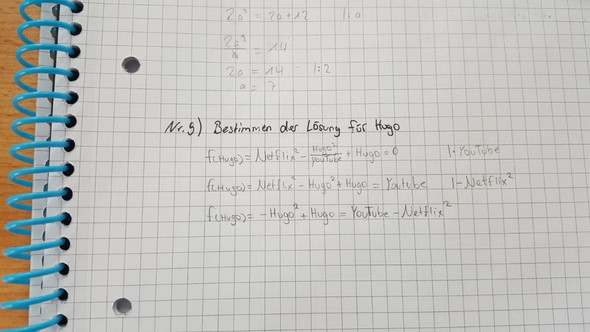 2a² = 2a+12 |:a
2a²/a = 14
2a = 14 |:2
a = 7
Nr.9) Bestimmen der Lösung für Hugo
f(Hugo) = Netflix² - Hugo²/YouTube + Hugo = 0 |·YouTube
f(Hugo) = Netflix² - Hugo² + Hugo = Youtube |-Netflix²
f(Hugo) = -Hugo² + Hugo = YouTube - Netflix²